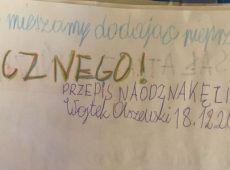 mieszamy dodając
CZNEGO!
PRZEPIS NA ODZNAKĘ
Wojtek Olszewski 18.12.20